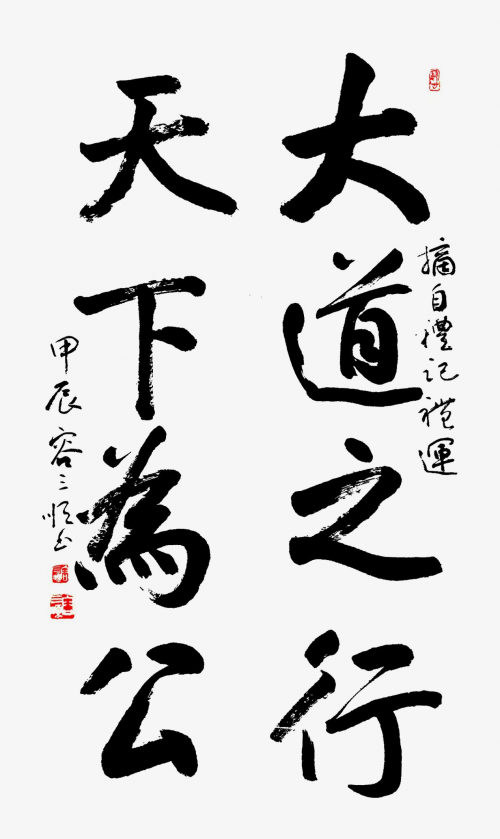 大道之行
摘自禮記禮運
天下為公
甲辰容三順书